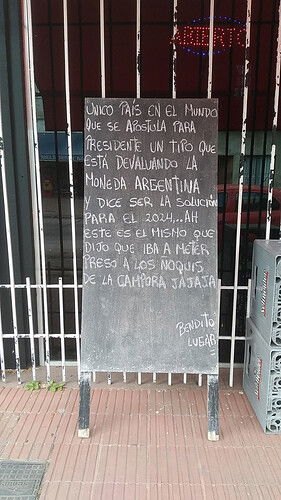 ABIERTO
UNICO PAÍS EN EL MUNDO
QUE SE APOSTULA PARA
PRESIDENTE UN TIPO QUE
ESTÁ DEVALUANDO LA
MONEDA ARGENTINA
Y DICE SER LA SOLUCIÓN
PARA EL 2024...AH
ESTE ES EL MISMO QUE
DIJO QUE IBA A METER
PRESO A LOS ÑOQUIS
DE LA CAMPORA JAJAJA
BENDITO
LUGAR